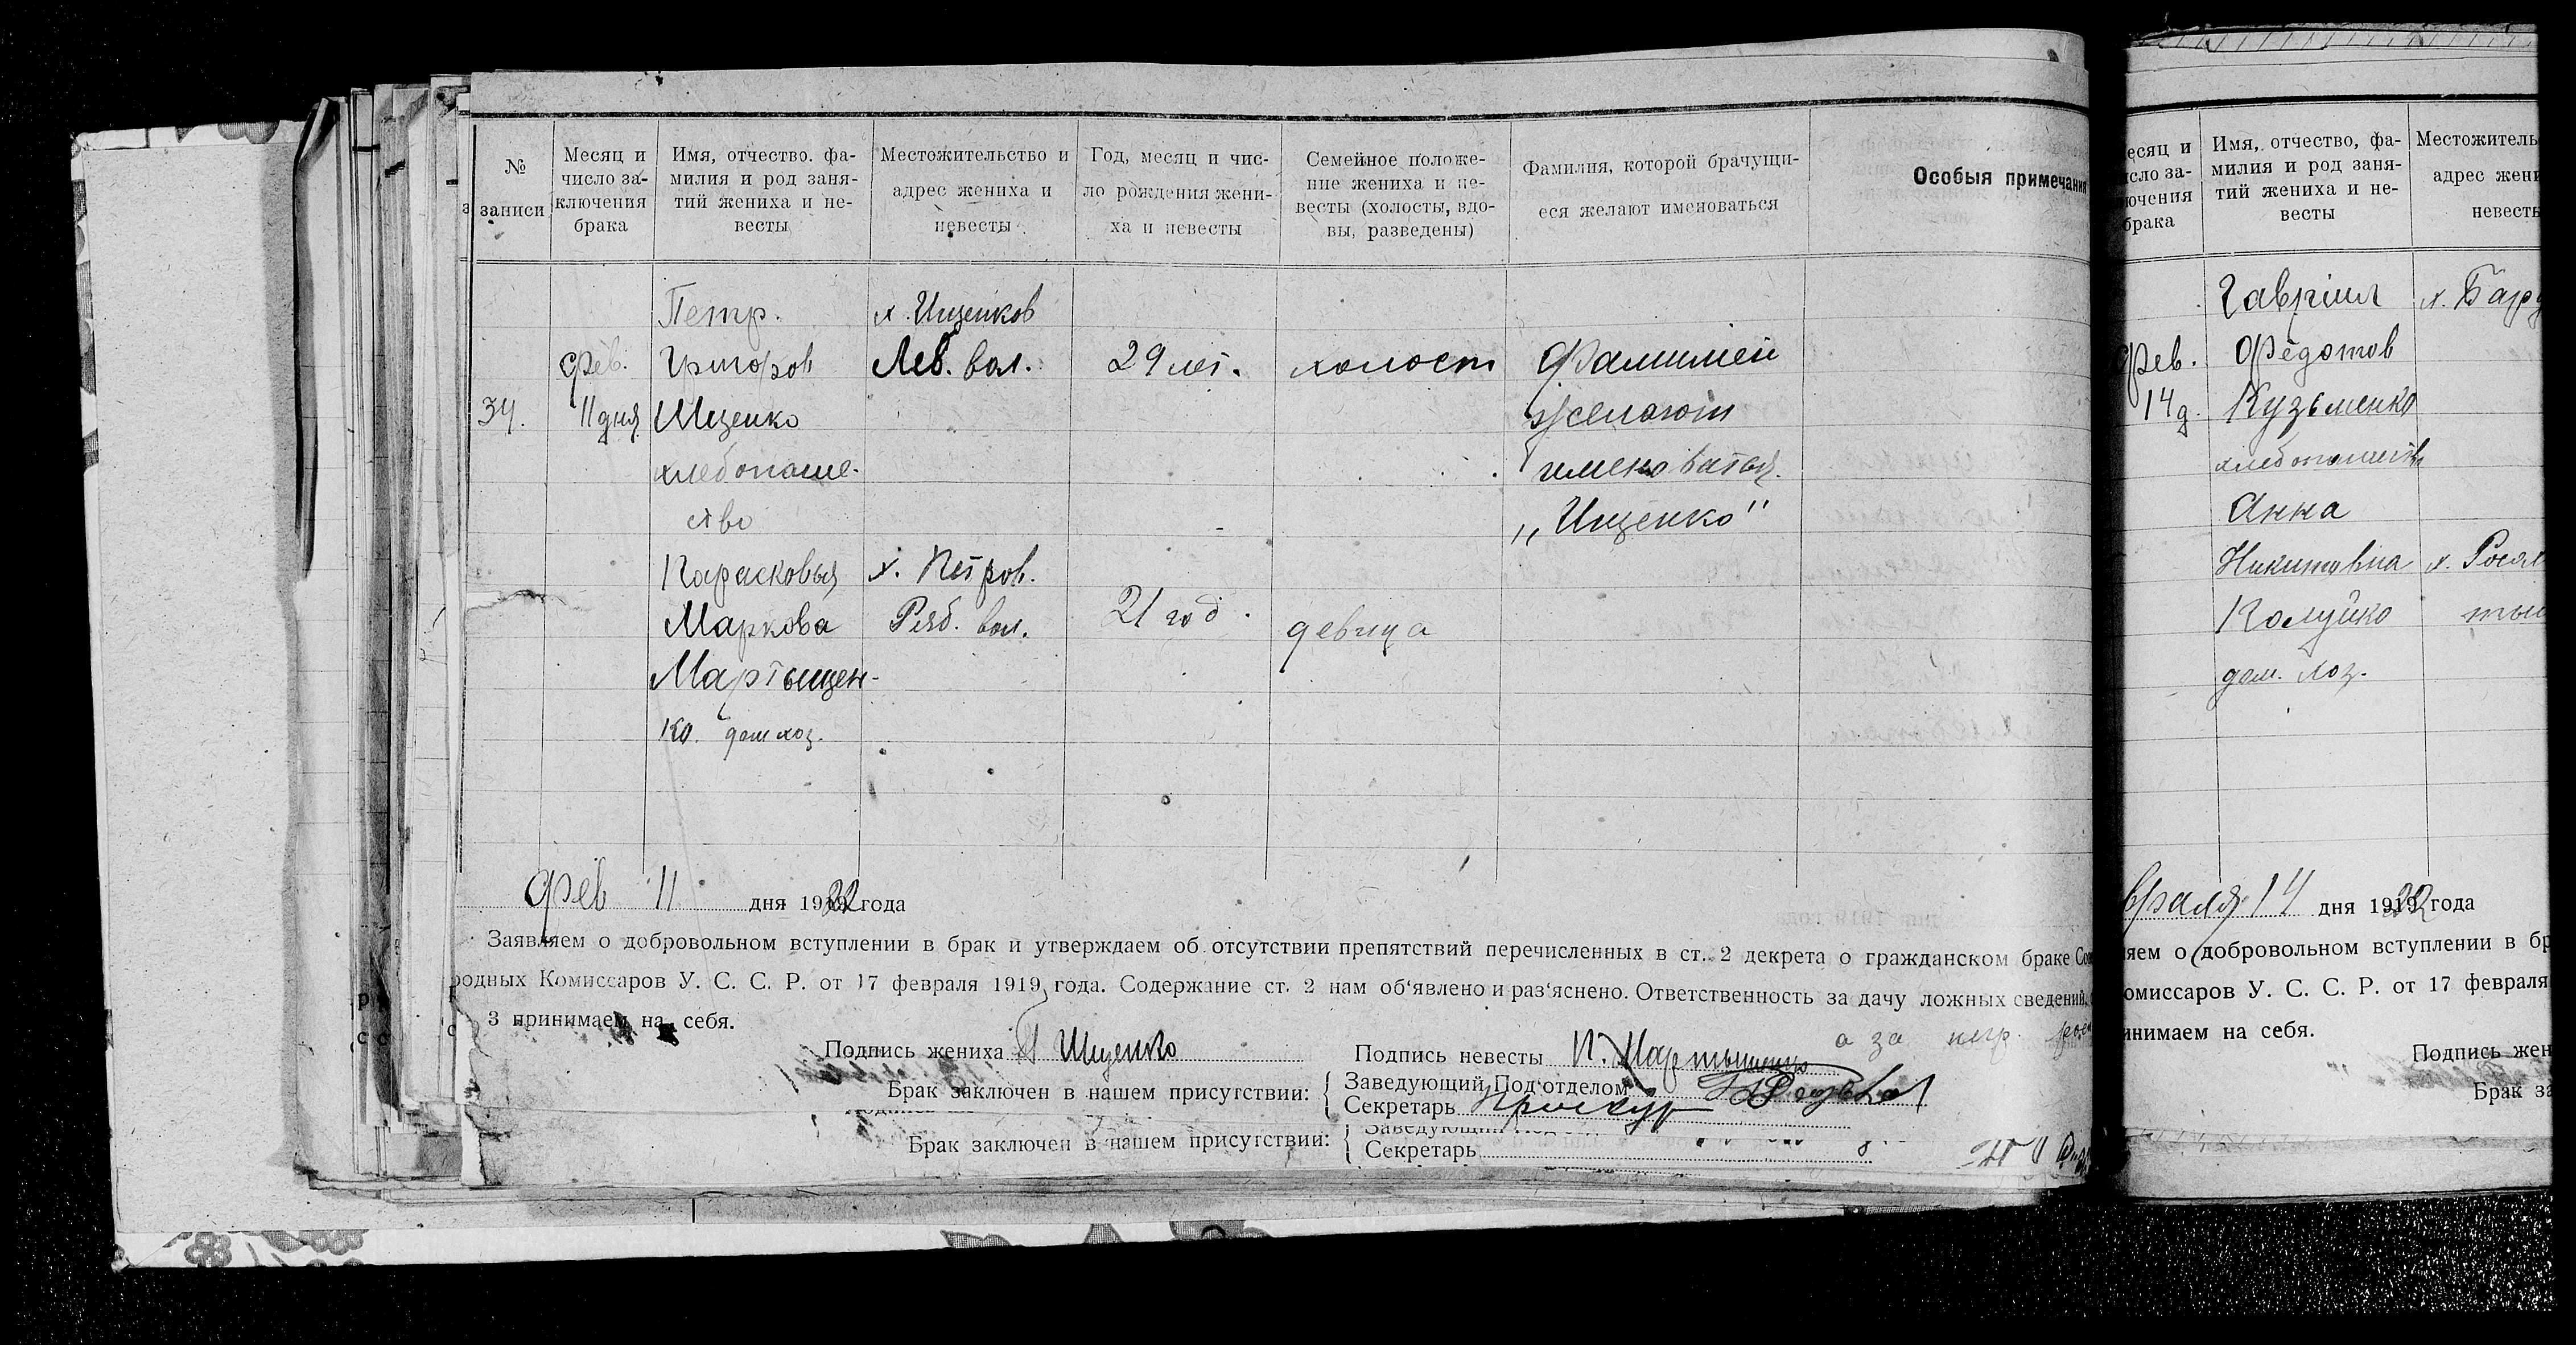 № записи
Месяц и число за-ключения брака
Имя, отчество. фа-милия и род заня-тий жениха и не-весты
Местожительство и адрес жениха и невесты
Год, месяц и чис-ло рождения жени-ха и невесты
Семейное положе-ние жениха и не-весты (холосты, вдо-вы, разведены)
Фамилия, которой брачущи-еся желают именоваться
Особыя примечания
Петр. х. Ищенков
фев. Григоров Леб. вол. 29 лет. холост Фамилией
34. 11 дня Ищенко желают
хлебопаше- именоваться.
ство „Ищенко"
Парасковья х. Петров.
Маркова Ряб. вол. 21 год. девица
Мартыщен-
ко. дом хоз.
фев 11 дня 1922 года
Заявляем о добровольном вступлении в брак и утверждаем об отсутствии препятствий перечисленных в ст. 2 декрета о гражданском браке
родных Комиссаров У. С. С. Р. от 17 февраля 1919 года. Содержание ст. 2 нам об‘явлено и раз‘яснено. Ответственность за дачу ложных сведений,
3 принимаем на себя.
Подпись жениха П Ищенко Подпись невесты П. Мартыщенко
а за негр.
Брак заключен в нашем присутствии: { Заведующий Под‘отделом
Секретарь
Брак заключен в нашем присутствии: {
Секретарь
есяц и
исло за-
лючения
брака
Имя, отчество, фа-милия и род заня-тий жениха и не-весты
Местожитель
адрес жени
невесты
Гавриил
фев. Федотов
14 д. Кузьменко
хлебопашеств
Анна
Никитовна
Колуйко
дом. хоз.
враля 14 дня 1922 года
яем о добровольном вступлении в бр
омиссаров У. С. С. Р. от 17 февраля
инимаем на себя.
Подпись жен
Брак за